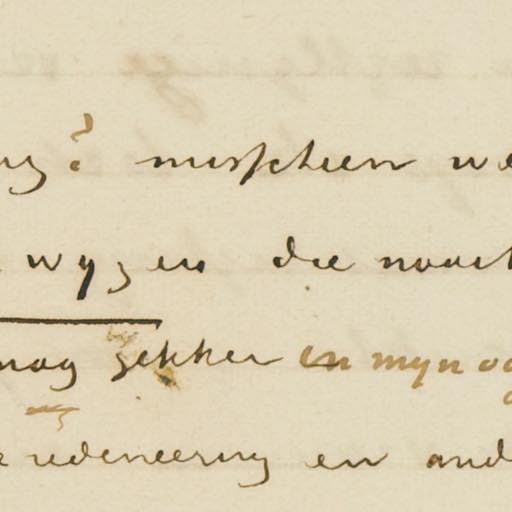 ng? misschien we
wyzen die nooit
nog gekker in myn oog
redeneering en and